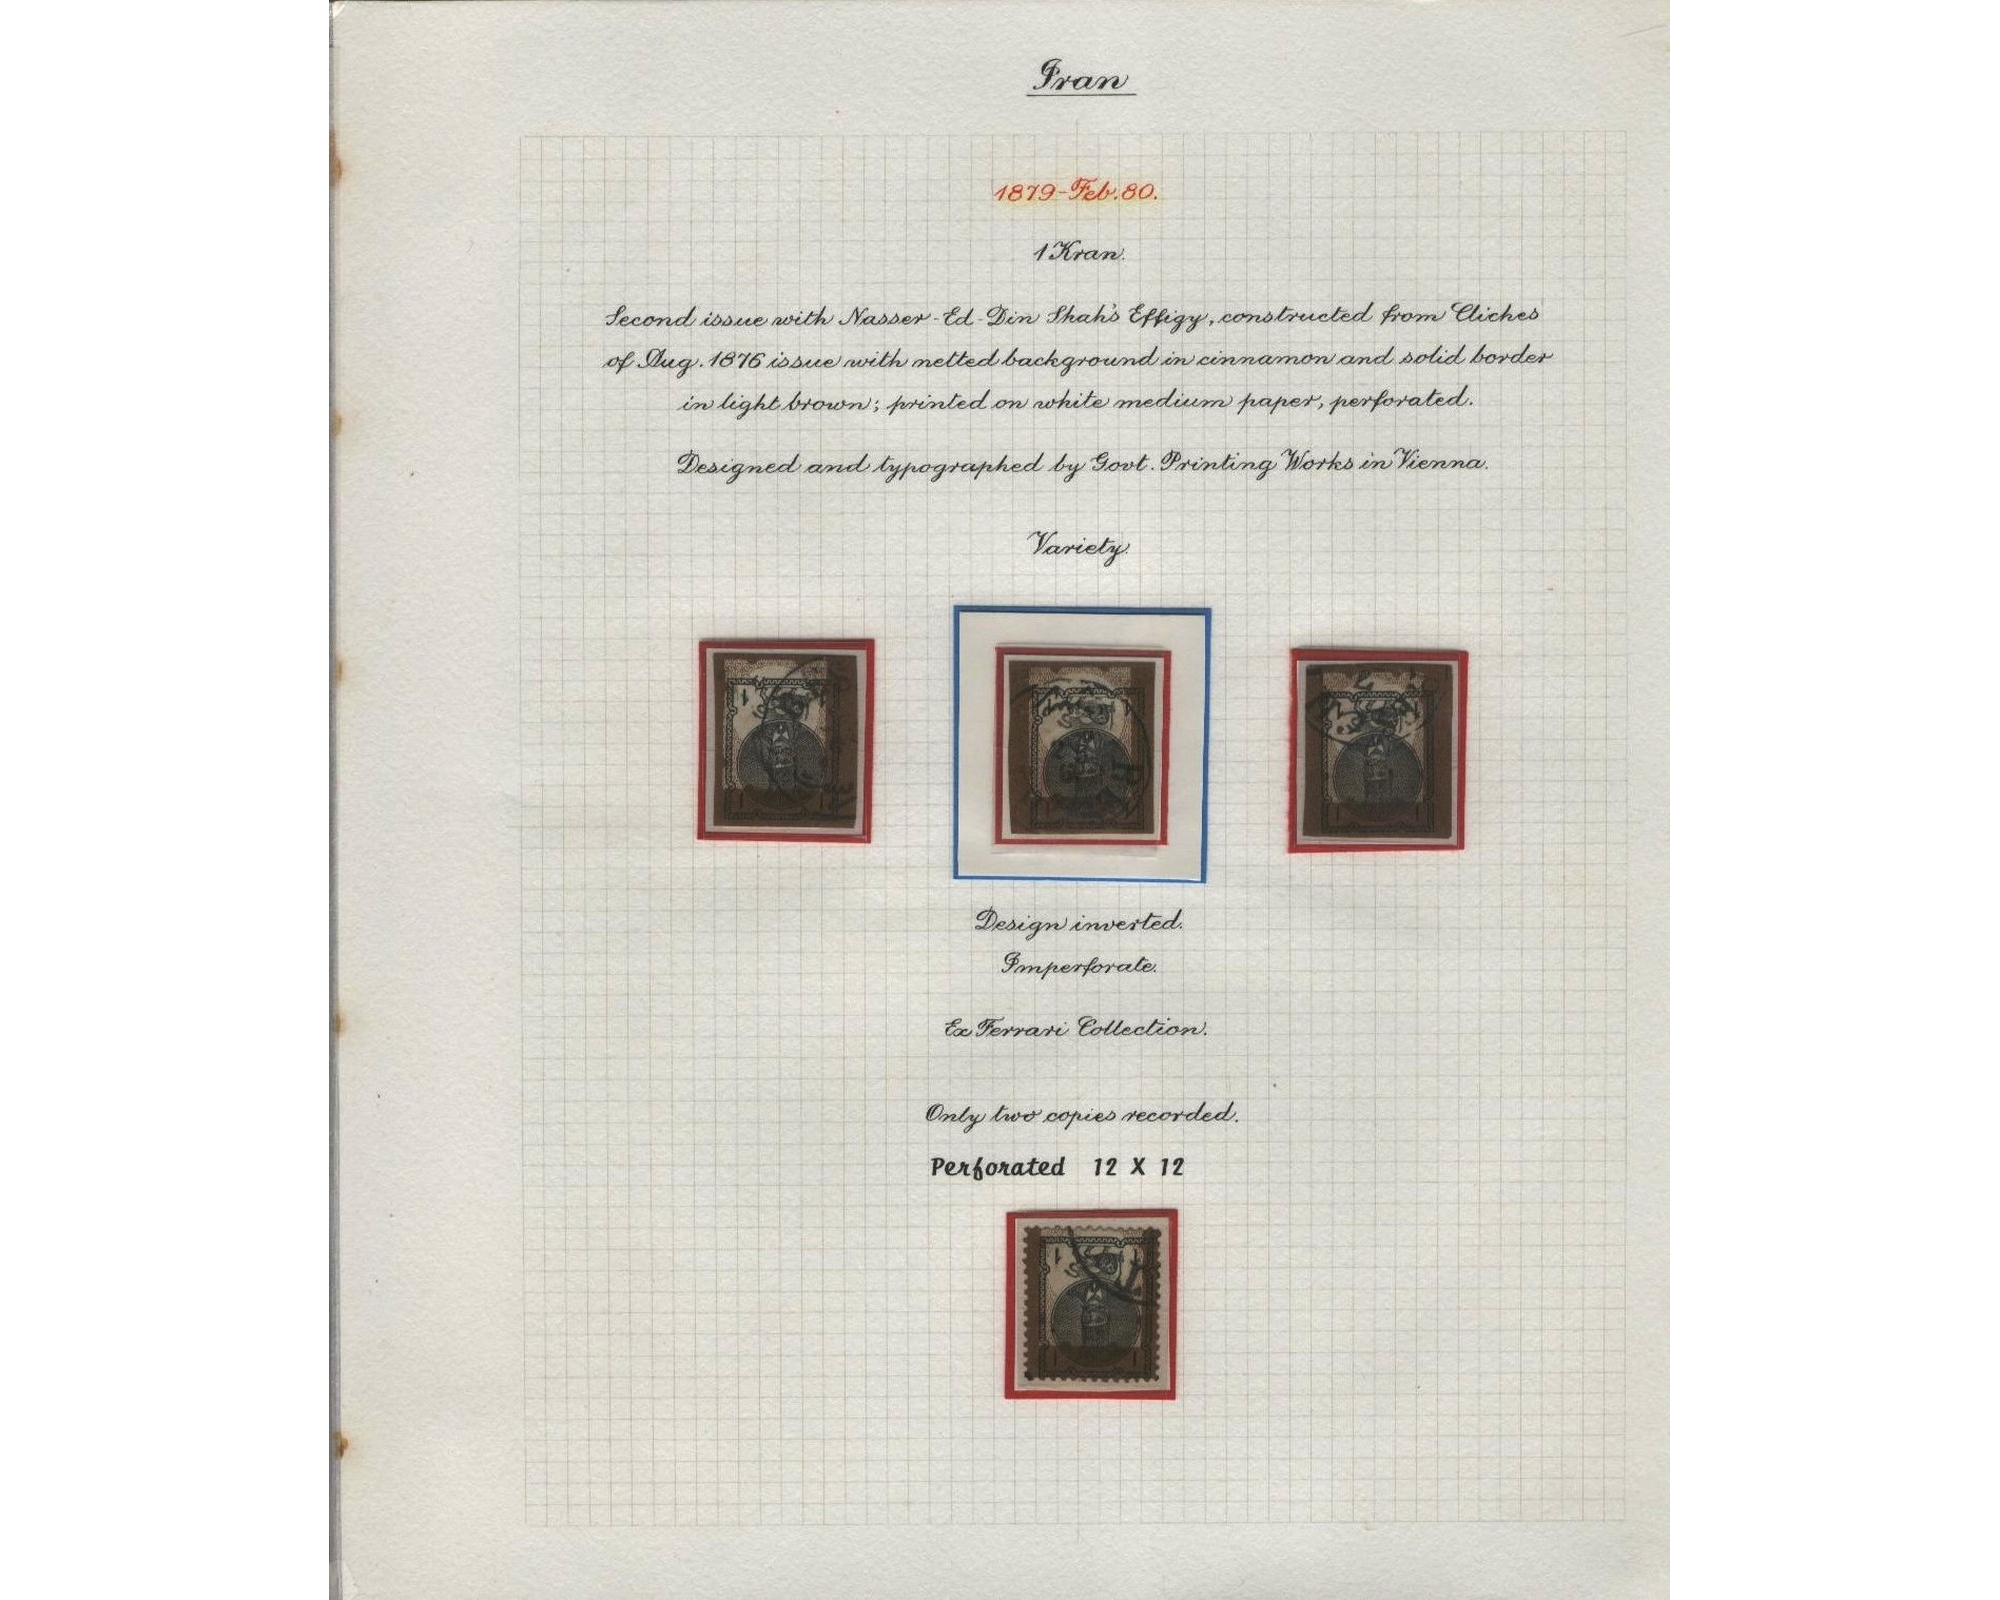 Iran
1879-Feb.80.
1 Kran.
Second issue with Nasser-Ed-Din Shah's Effigy, constructed from Cliches
of Aug. 1876 issue with netted background in cinnamon and solid border
in light brown; printed on white medium paper, perforated.
Designed and typographed by Govt. Printing Works in Vienna.
Variety.
Design inverted.
Imperforate.
Ex Ferrari Collection.
Only two copies recorded.
Perforated 12 X 12